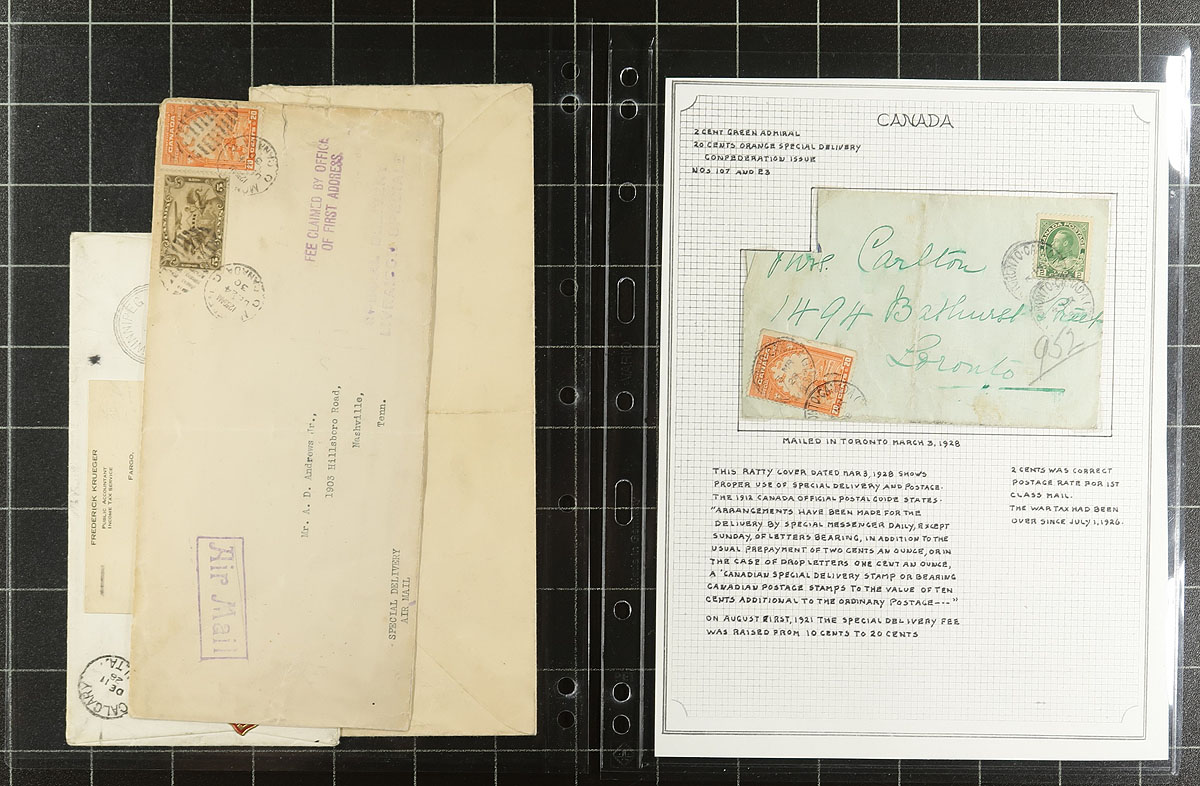 CANADA
20 CENTS 20
5 CENTS 5
MON
CANADA
DE 24
30
CANADA
FEE CLAIMED BY OFFICE
OF FIRST ADDRESS.
Mr. A. D. Andrews Jr.,
1903 Hillsboro Road,
Nashville,
Tenn.
SPECIAL DELIVERY
AIR MAIL
Air Mail
WINNIPEG
FREDERICK KRUEGER
PUBLIC ACCOUNTANT
INCOME TAX SERVICE
FARGO,
CALGARY
DE 11
CANADA
2 CENT GREEN ADMIRAL
20 CENTS ORANGE SPECIAL DELIVERY
CONFEDERATION ISSUE
NOS 107 AND E3
CANADA POSTAGE
2 CENTS 2
TORONTO·CANADA
Mrs. Carlton
1494 Bathurst Street
Toronto
952
CANADA
20 CENTS 20
MAILED IN TORONTO MARCH 3, 1928
THIS RATTY COVER DATED MAR 3, 1928 SHOWS
PROPER USE OF SPECIAL DELIVERY AND POSTAGE.
THE 1912 CANADA OFFICIAL POSTAL GUIDE STATES-
"ARRANGEMENTS HAVE BEEN MADE FOR THE
DELIVERY BY SPECIAL MESSENGER DAILY, EXCEPT
SUNDAY, OF LETTERS BEARING, IN ADDITION TO THE
USUAL PREPAYMENT OF TWO CENTS AN OUNCE, OR IN
THE CASE OF DROP LETTERS ONE CENT AN OUNCE,
A "CANADIAN SPECIAL DELIVERY STAMP OR BEARING
CANADIAN POSTAGE STAMPS TO THE VALUE OF TEN
CENTS ADDITIONAL TO THE ORDINARY POSTAGE---"
ON AUGUST FIRST, 1921 THE SPECIAL DELIVERY FEE
WAS RAISED FROM 10 CENTS TO 20 CENTS
2 CENTS WAS CORRECT
POSTAGE RATE FOR 1ST
CLASS MAIL.
THE WAR TAX HAD BEEN
OVER SINCE JULY 1, 1926.